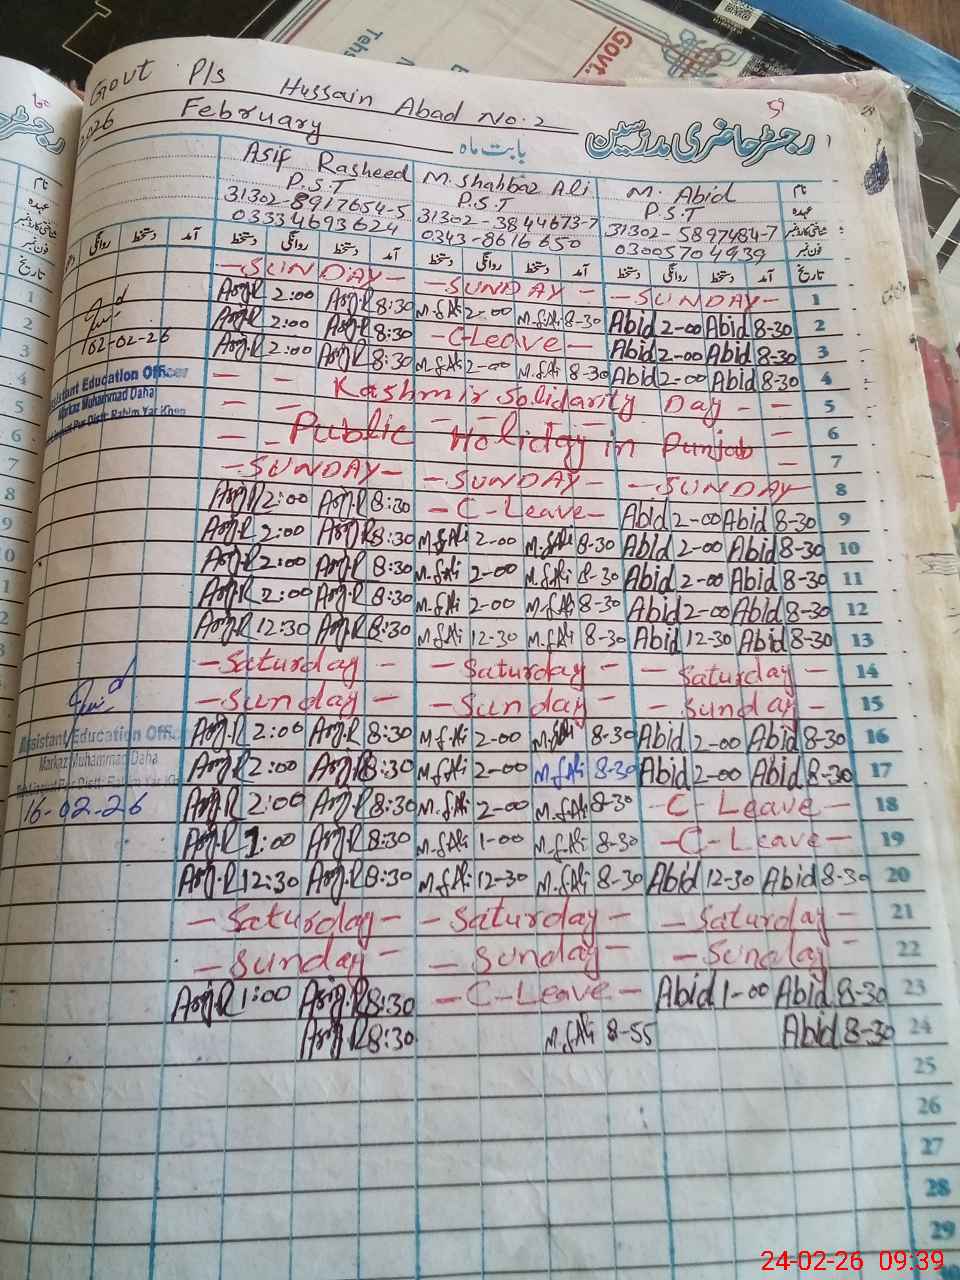 Govt P/s Hussain Abad No. 2
2026 February بابت ماہ رجسٹر حاضری مدرسین
Asif Rasheed M. Shahbaz Ali M. Abid نام
P.S.T P.S.T P.S.T عہدہ
31302-8917654-5 31302-3844673-7 31302-5897484-7 شناختی کارڈ نمبر
03334693624 0343-8616650 03005704939 فون نمبر
دستخط روانگی دستخط آمد دستخط روانگی دستخط آمد دستخط روانگی دستخط آمد تاریخ
- SUNDAY - - SUNDAY - - SUNDAY - 1
Asif.R 2:00 Asif.R 8:30 M.S.Ali 2-00 M.S.Ali 8-30 Abid 2-00 Abid 8-30 2
Asif.R 2:00 Asif.R 8:30 - C-Leave - Abid 2-00 Abid 8-30 3
Asif.R 2:00 Asif.R 8:30 M.S.Ali 2-00 M.S.Ali 8-30 Abid 2-00 Abid 8-30 4
02-02-26
Assistant Education Officer
Markaz Muhammad Daha
Distt: Rahim Yar Khan
- - Kashmir Solidarity Day - - 5
- - Public Holiday in Punjab - 6
7
- SUNDAY - - SUNDAY - - SUNDAY - 8
Asif.R 2:00 Asif.R 8:30 - C-Leave - Abid 2-00 Abid 8-30 9
Asif.R 2:00 Asif.R 8:30 M.S.Ali 2-00 M.S.Ali 8-30 Abid 2-00 Abid 8-30 10
Asif.R 2:00 Asif.R 8:30 M.S.Ali 2-00 M.S.Ali 8-30 Abid 2-00 Abid 8-30 11
Asif.R 2:00 Asif.R 8:30 M.S.Ali 2-00 M.S.Ali 8-30 Abid 2-00 Abid 8-30 12
Asif.R 12:30 Asif.R 8:30 M.S.Ali 12-30 M.S.Ali 8-30 Abid 12-30 Abid 8-30 13
- Saturday - - Saturday - - Saturday - 14
- Sunday - - Sunday - - Sunday - 15
Asif.R 2:00 Asif.R 8:30 M.S.Ali 2-00 M.S.Ali 8-30 Abid 2-00 Abid 8-30 16
Assistant Education Offic
Markaz Muhammad Daha
16-02-26
Asif.R 2:00 Asif.R 8:30 M.S.Ali 2-00 M.S.Ali 8-30 Abid 2-00 Abid 8-30 17
Asif.R 2:00 Asif.R 8:30 M.S.Ali 2-00 M.S.Ali 8-30 - C-Leave - 18
Asif.R 1:00 Asif.R 8:30 M.S.Ali 1-00 M.S.Ali 8-30 - C-Leave - 19
Asif.R 12:30 Asif.R 8:30 M.S.Ali 12-30 M.S.Ali 8-30 Abid 12-30 Abid 8-30 20
- Saturday - - Saturday - - Saturday - 21
- Sunday - - Sunday - - Sunday - 22
Asif.R 1:00 Asif.R 8:30 - C-Leave - Abid 1-00 Abid 8-30 23
Asif.R 8:30 M.S.Ali 8-55 Abid 8-30 24
25
26
27
28
29
24-02-26 09:39